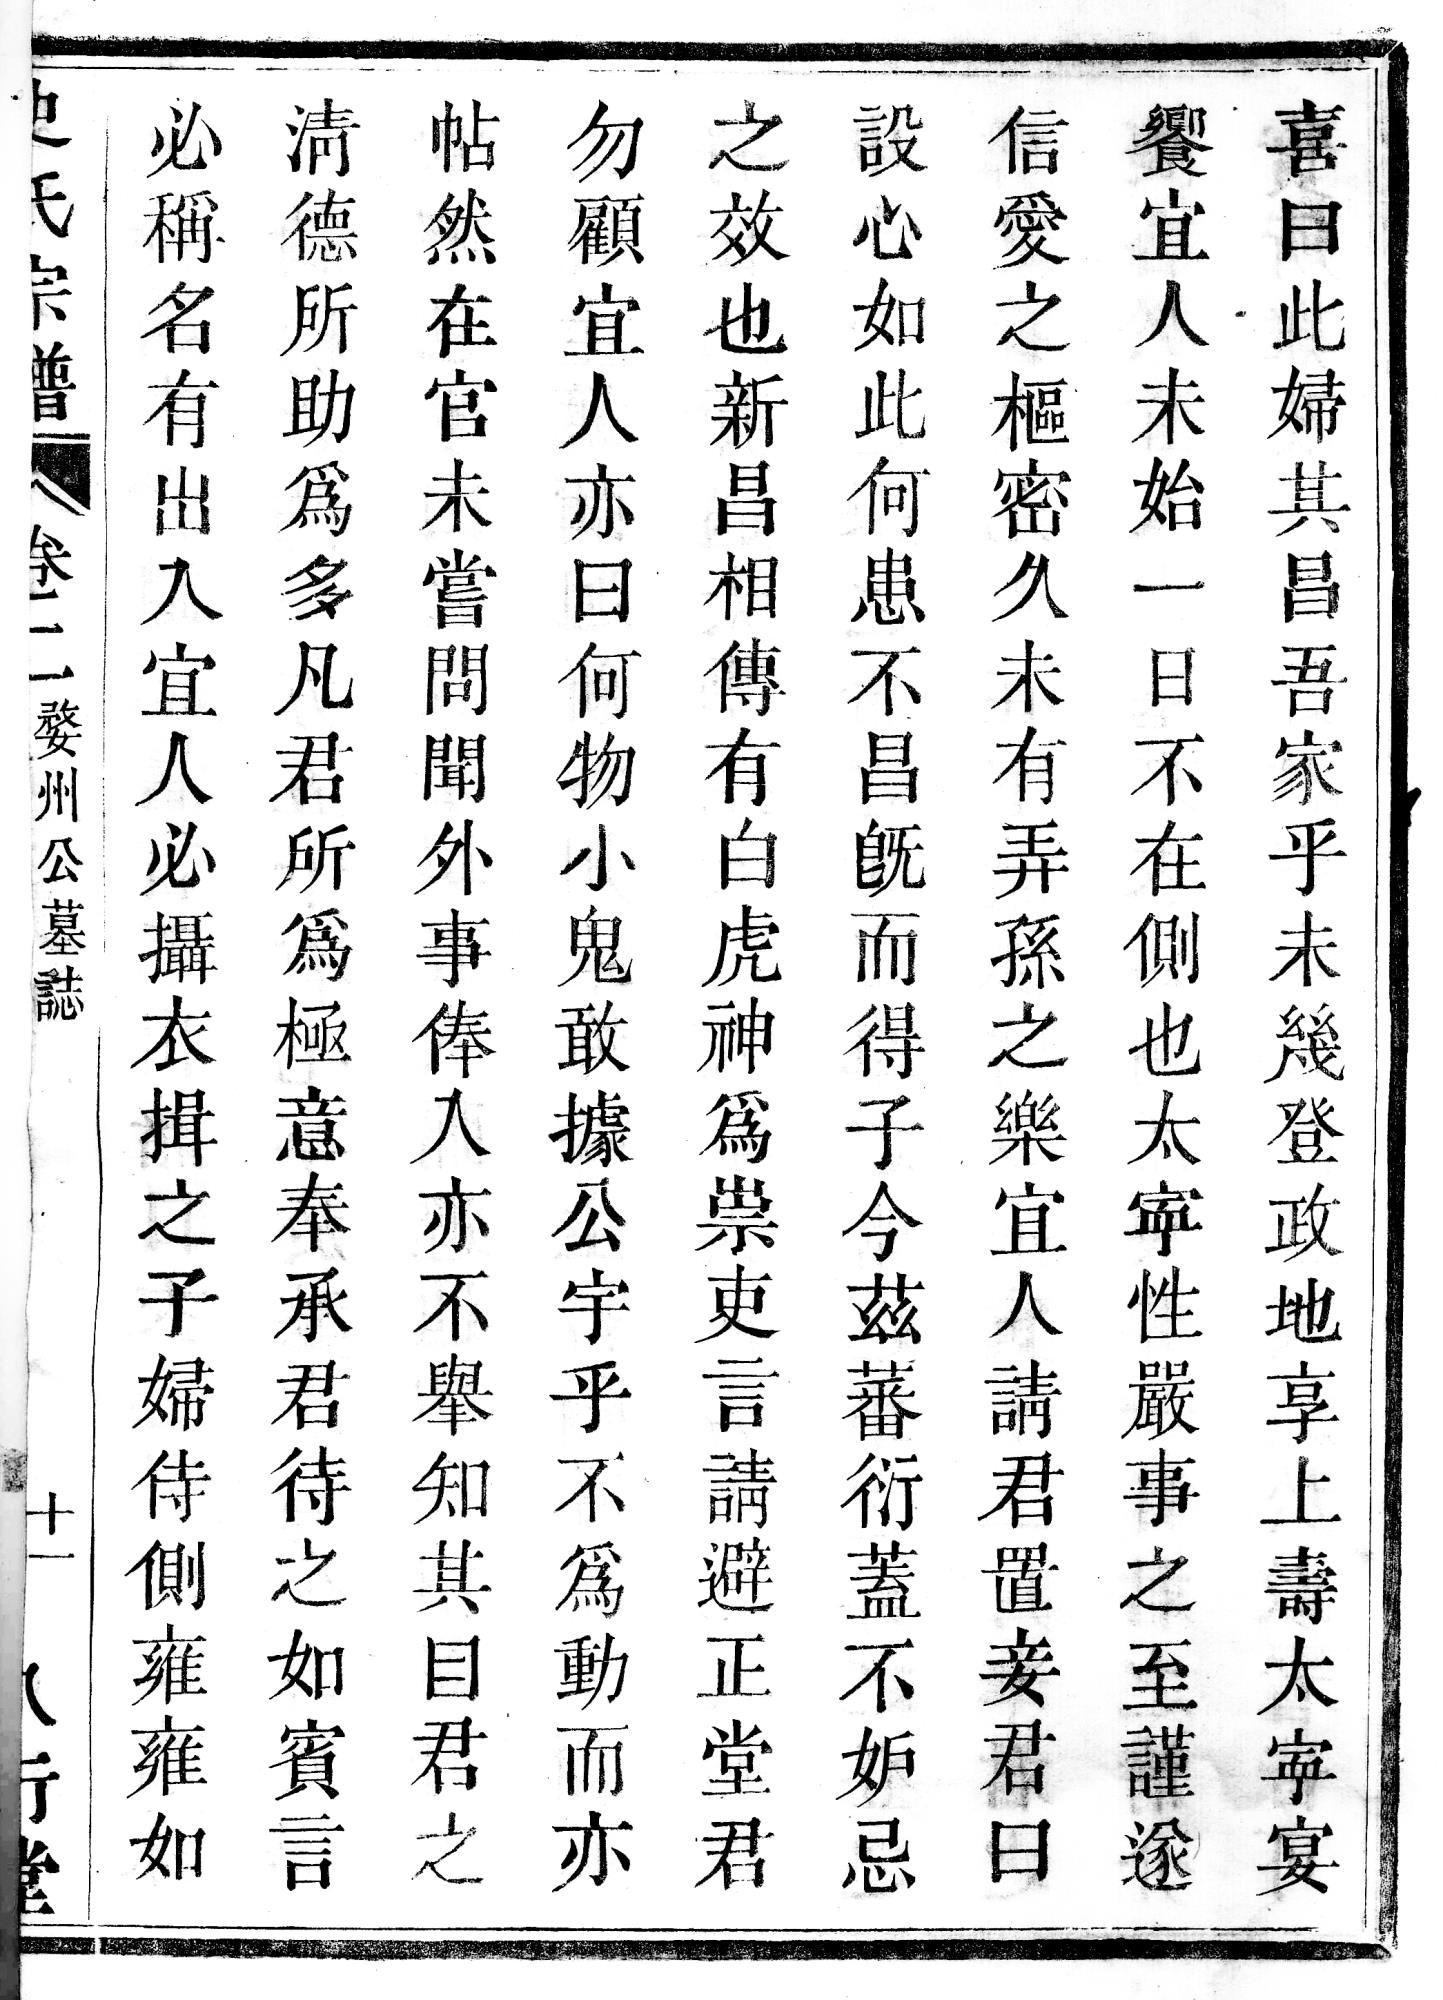 喜曰此婦其昌吾家乎未幾登政地享上壽太寜宴
饗宜人未始一日不在側也太寜性嚴事之至謹遂
信愛之樞密久未有弄孫之樂宜人請君置妾君曰
設心如此何患不昌旣而得子今茲蕃衍蓋不妒忌
之效也新昌相傳有白虎神爲祟吏言請避正堂君
勿顧宜人亦曰何物小鬼敢據公宇乎不爲動而亦
帖然在官未嘗問聞外事俸入亦不舉知其目君之
清德所助爲多凡君所爲極意奉承君待之如賓言
必稱名有出入宜人必攝衣揖之子婦侍側雍雍如
史氏宗譜 卷二 婺州公墓誌 十一 八行堂